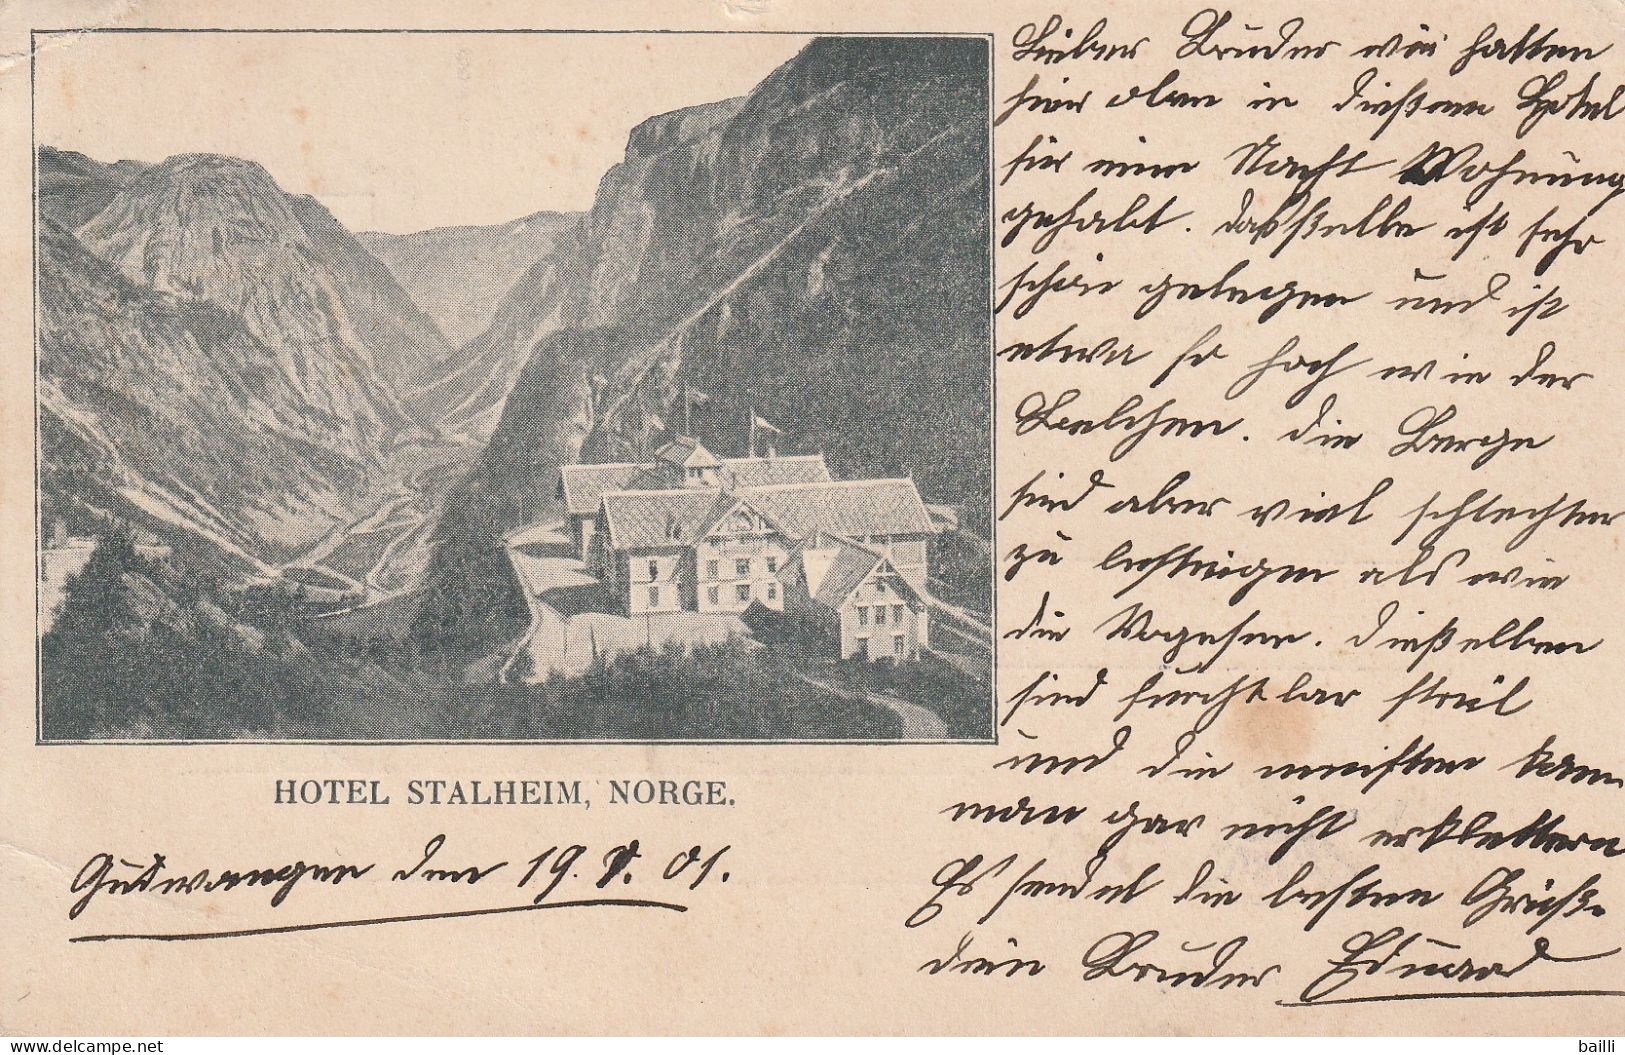 HOTEL STALHEIM, NORGE.
Gudwangen den 19. 7. 01.
Lieber Bruder wir hatten
hier oben in dießem Hotel
für eine Nacht Wohnung
gehabt. daßselbe ist sehr
schön gelegen und ist
etwa so hoch wie der
Belchen. die Berge
sind aber viel schlechter
zu besteigen als wie
die Vogesen. dießelben
sind furchtbar steil
und die meisten kann
man gar nicht erklettern
Es sendet die besten Grüße
dein Bruder Eduard
www.delcampe.net
bailli